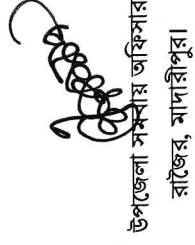 উপজেলা সমবায় অফিসার
রাজৈর, মাদারীপুর।